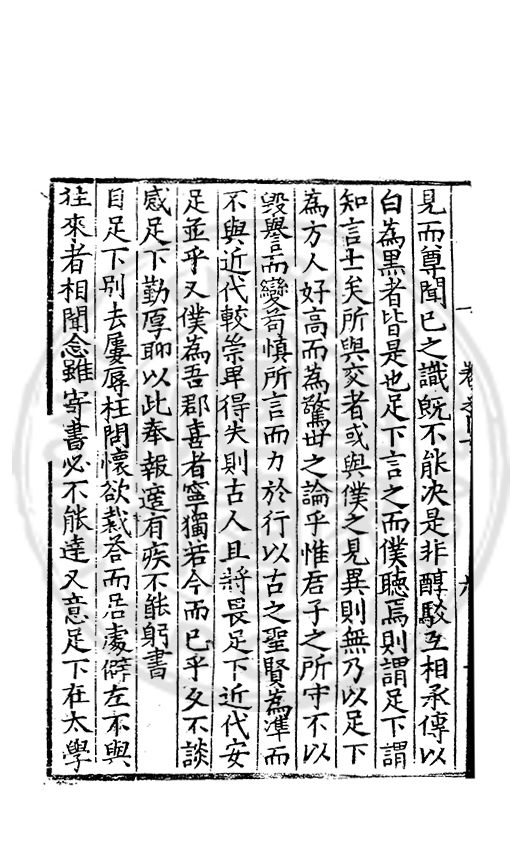 見而尊聞已之識旣不能決是非醇駁互相承傳以
白為黑者皆是也足下言之而僕聽焉則謂足下謂
知言士矣所與交者或與僕之見異則無乃以足下
為方人好高而為驚世之論乎惟君子之所守不以
毀譽而變苟慎所言而力於行以古之聖賢為準而
不與近代較崇卑得失則古人且將畏足下近代安
足並乎又僕為吾郡喜者寧獨若今而已乎久不談
感足下勤厚聊以此奉報適有疾不能躬書
自足下別去屢辱枉問懷欲裁荅而居處僻左不與
往來者相聞念雖寄書必不能達又意足下在太學